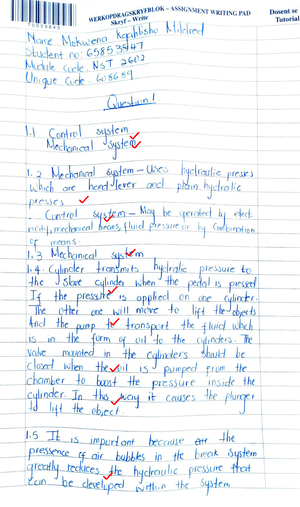 WERKOPDRAGSKRYFBLOK – ASSIGNMENT WRITING PAD
Dosent se
Skryf – Write
Tutorial
Name Mokwena Kgahlisho Mildred
Student no: 65853547
Module Code NST 2602
Unique Code 608689
Question 1
1.1 Control system
Mechanical system
1.2 Mechanical system – Uses hydraulic presses
which are hand lever and plain hydralic
presses
. Control system – May be operated by elect
ricity, mechanical means, fluid pressure or by combination
of means.
1.3 Mechanical system
1.4. Cylinder transmits hydralic pressure to
the slave cylinder when the pedal is pressed
If the pressure is applied on one cylinder.
The other one will move to lift the objects
And the pump to transport the fluid which
is in the form of oil to the cylinders. The
valve mounted in the cylinders should be
closed when the oil is pumped from the
chamber to boost the pressure inside the
cylinder. In this way it causes the plunger
to lift the object.
1.5 It is important because the
pressence of air bubbles in the break system
greatly reduces the hydraulic pressure that
can be developed within the system